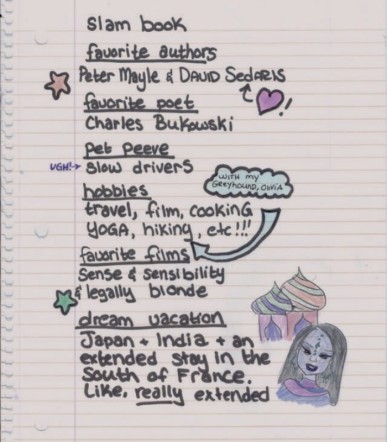 slam book
favorite authors
Peter Mayle & DAVID SedARIS
!
favorite poet
Charles Bukowski
pet peeve
UGH!→ slow drivers
WITH my
GREYHOUND, OLIVIA
hobbies
travel, film, cooking
YOGA, hiking, etc!!!
favorite films
Sense & sensibility
& legally blonde
dream vacation
Japan + India + an
extended stay in the
South of France.
Like, really extended